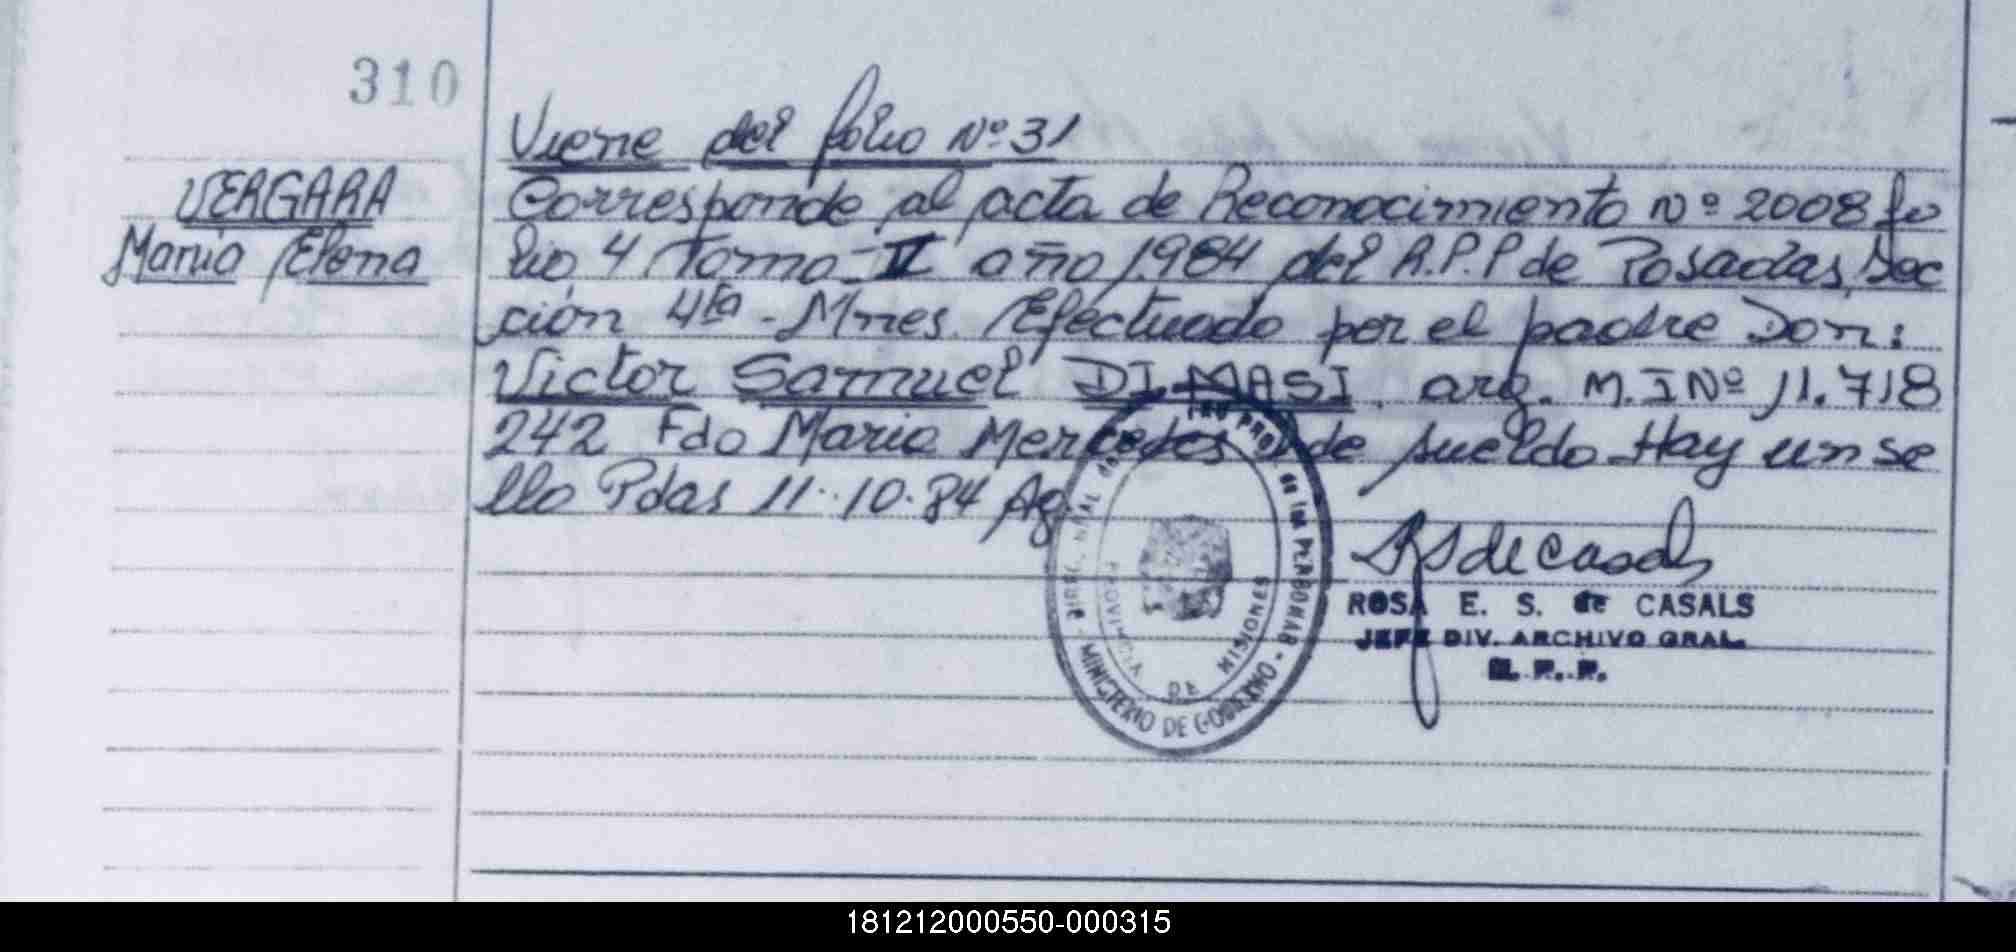 310
VERGARA
Maria Elena
Viene del folio Nº 31
Corresponde al acta de Reconocimiento Nº 2008 fo
lio 4 Tomo II año 1984 del R.P.P de Posadas, Sec
ción 4ta - Mnes. Efectuado por el padre Don:
Victor Samuel DI MASI. arg. M.I Nº 11.718
242 Fdo Maria Mercedes de Sueldo Hay un se
llo Pdas 11-10-84 Ag.
MINISTERIO DE GOBIERNO
PROVINCIA DE MISIONES
de las PERSONAS
RS de Casals
ROSA E. S. de CASALS
JEFE DIV. ARCHIVO GRAL.
R. P. P.
181212000550-000315